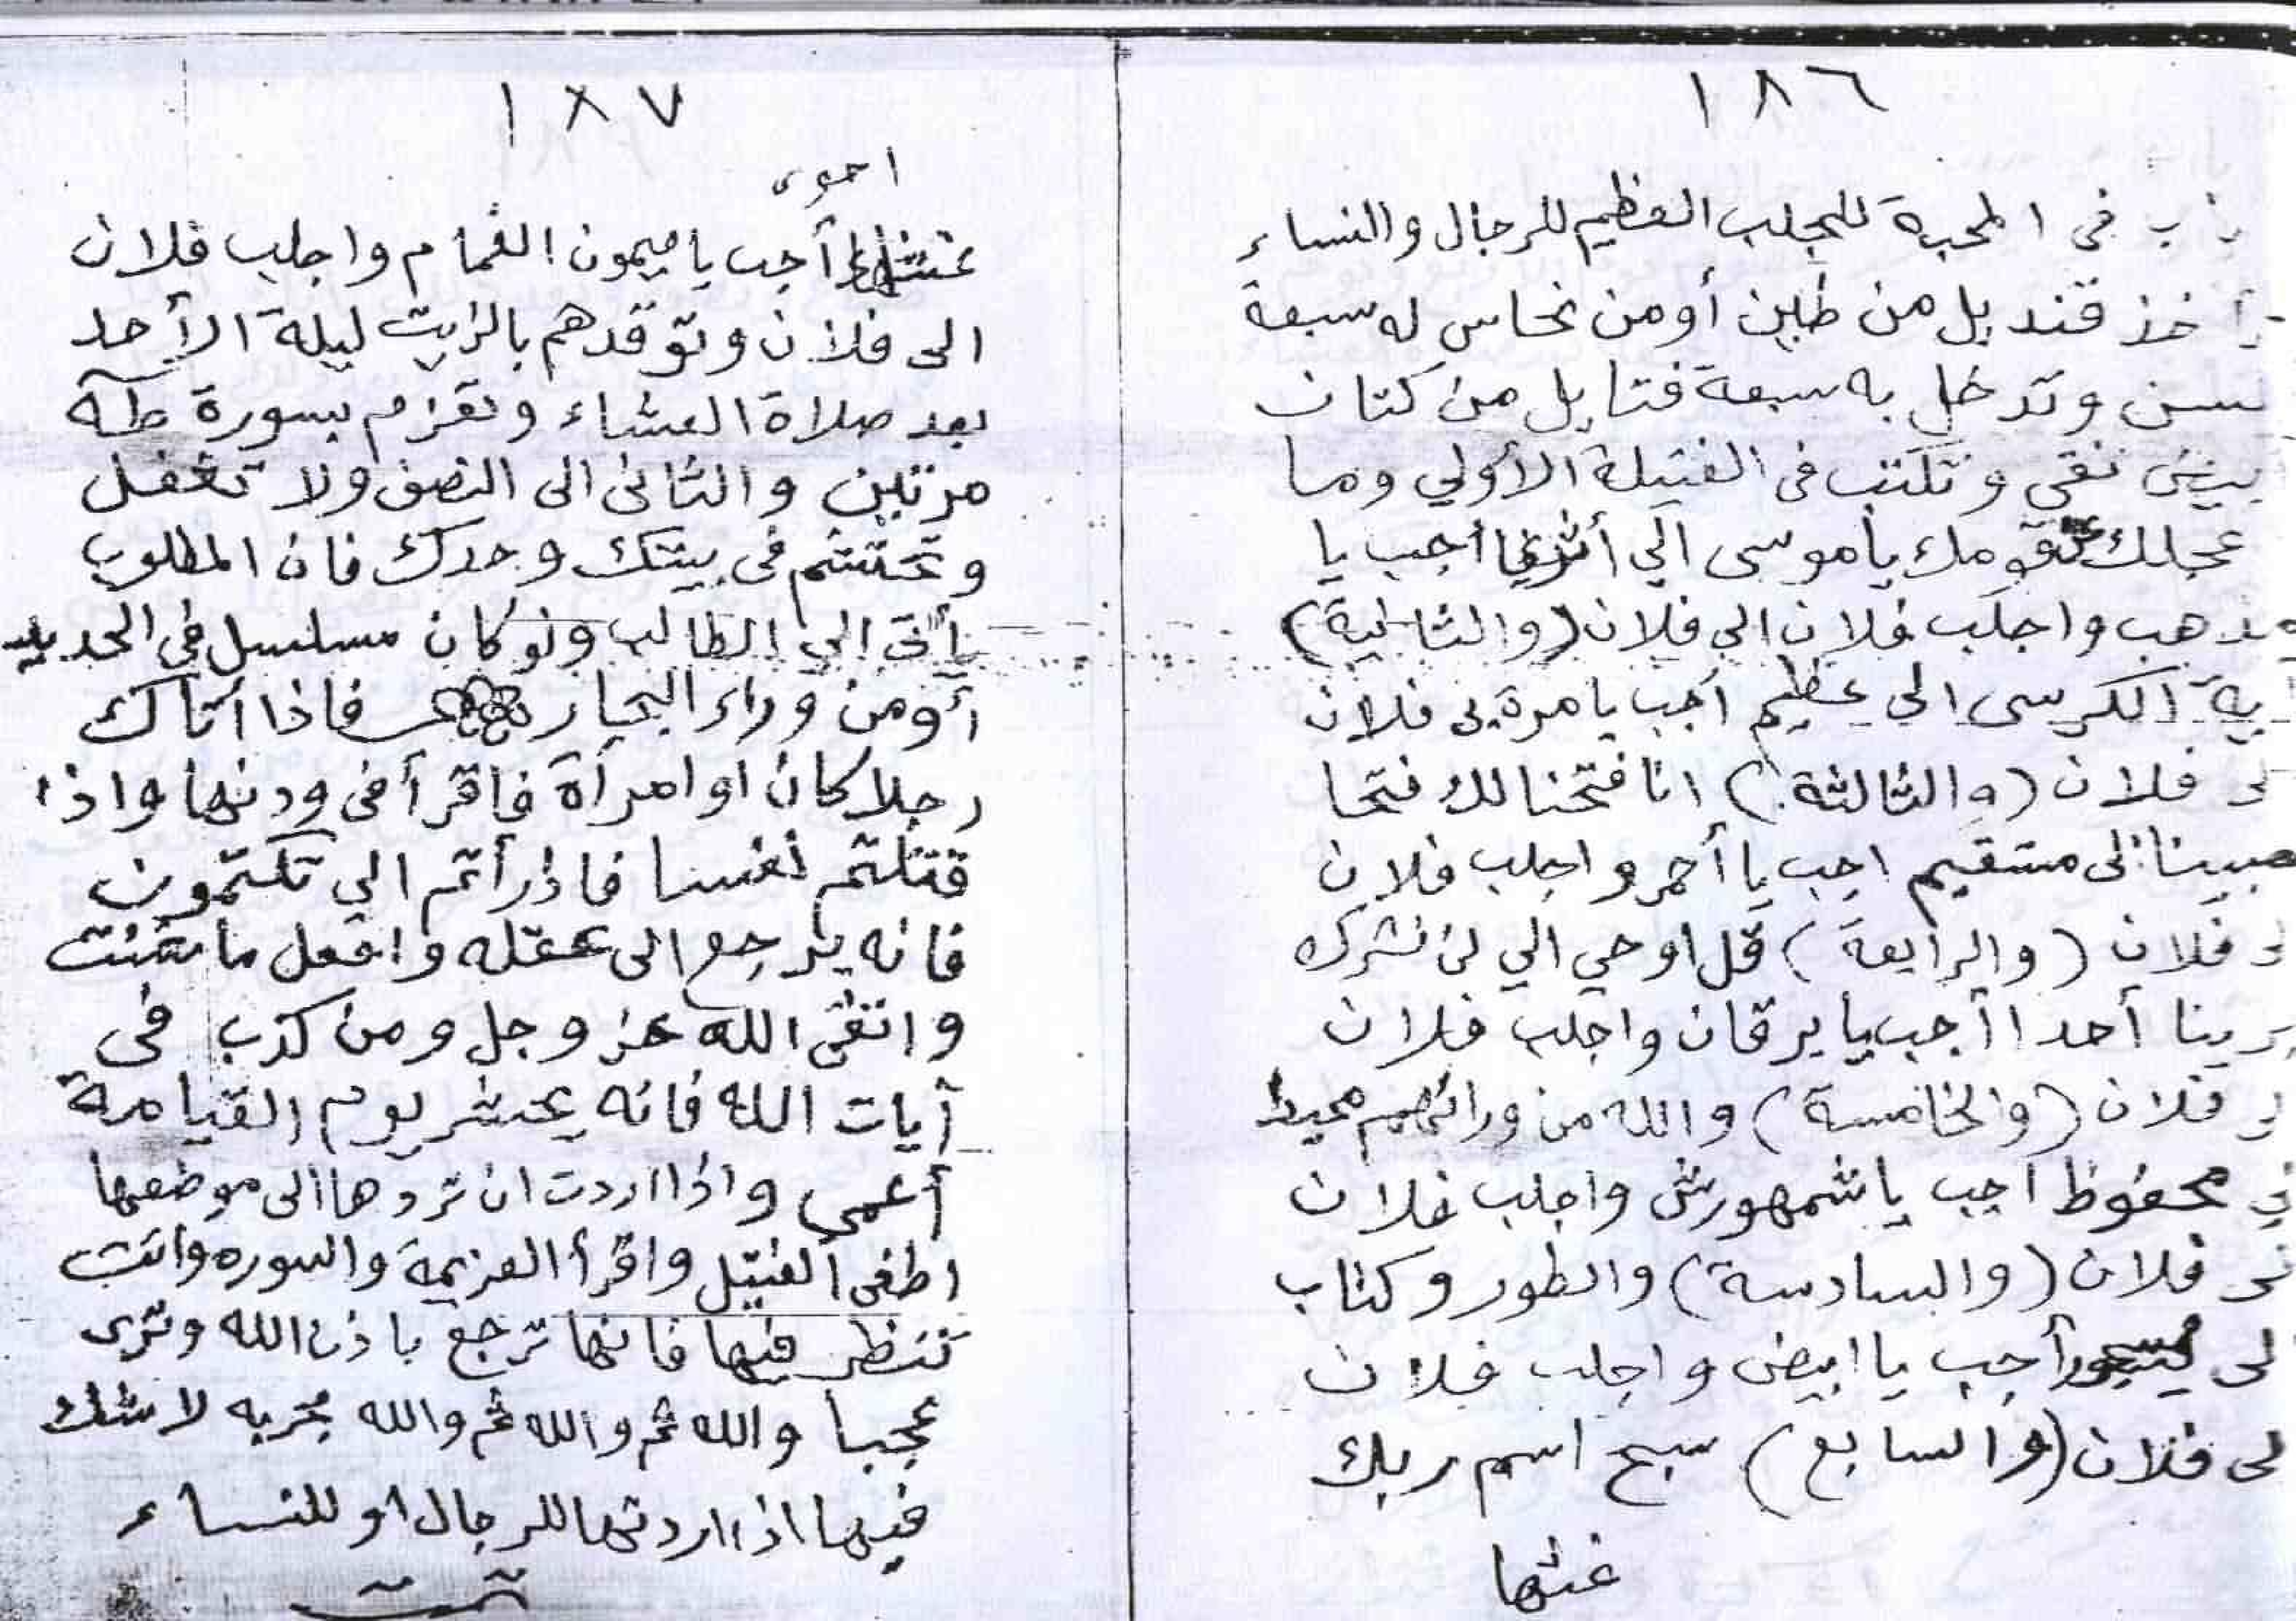 ١٨٦
باب في المحبة للجلب العظيم للرجال والنساء
تأخذ قنديل من طين أو من نحاس له سبعة
لسن وتدخل به سبعة فتايل من كتان
بيض نقي وتكتب في الفتيلة الأولي وما
عجلك قومك يا موسى الي أثري أجب يا
مذهب واجلب فلان الي فلان (والثانية)
آية الكرسي الي عظيم أجب يا مرة فلان
لى فلان (والثالثة) انا فتحنا لك فتحا
مبينا الى مستقيم اجب يا أحمر واجلب فلان
لى فلان (والرابعة) قل اوحي الي لن نشرك
بربنا أحدا أجب يا برقان واجلب فلان
لى فلان (والخامسة) والله من ورائهم محيط
في محفوظ أجب يا شمهورش واجلب فلان
لى فلان (والسادسة) والطور وكتاب
لى أجب يا ابيض واجلب فلان
لى فلان (والسابع) سبح اسم ربك
١٨٧
احوى
أجب يا ميمون الغمام واجلب فلان
الى فلان وتوقدهم بالزيت ليلة الأحد
بعد صلاة العشاء وتعزم بسورة طه
مرتين والثانى الى النصف ولا تغفل
وتختتم فى بيتك وحدك فان المطلوب
يأتى الي الطالب ولو كان مسلسل في الحديد
أو من وراء البحار فاذا أتاك
رجلا كان او امرأة فاقرأ فى ودنها واذا
قتلتم نفسا فاذرأتم الي تكتمون
فانه يرجع الى عقله وافعل ما شئت
واتقى الله عز وجل ومن كذب فى
آيات الله فانه يحشر يوم القيامة
أعمي واذا اردت ان تردها الى موضعها
اطفى الفتيل واقرأ العزيمة والسوره وانت
تنظر فيها فانها ترجع باذن الله وترى
عجبا والله ثم والله ثم والله مجربه لا شك
فيها اذا اردتها للرجال او للنساء
تمت